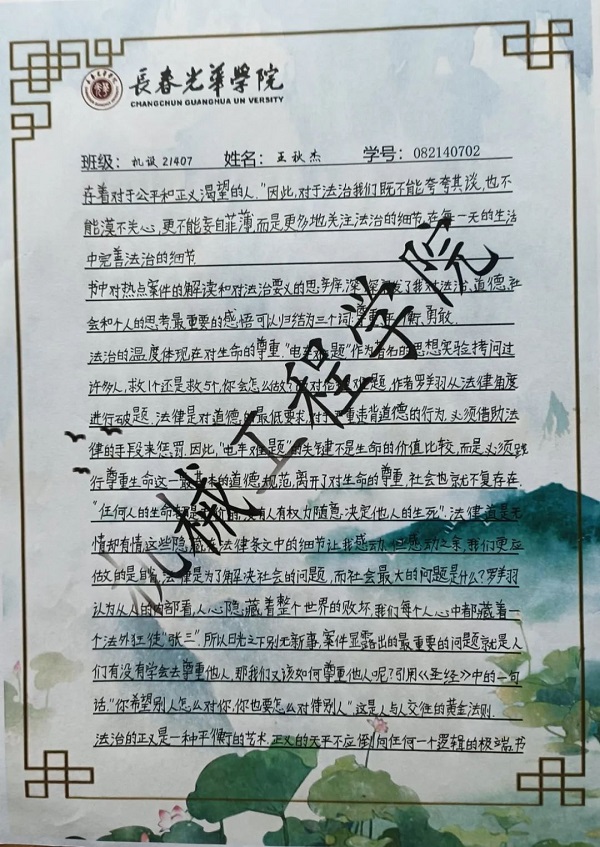 長春光華學院
CHANGCHUN GUANGHUA UN VERSITY
班级：机设21407 姓名：王秋杰 学号：082140702
存着对于公平和正义渴望的人。"因此，对于法治我们既不能夸夸其谈，也不
能漠不关心，更不能妄自菲薄，而是更多地关注法治的细节，在每一天的生活
中完善法治的细节
书中对热点案件的解读和对法治要义的思辨，深深 发了我对法治、道德、社
会和个人的思考，最重要的感悟可以归结为三个词：尊重、平衡、勇敢.
法治的温度体现在对生命的尊重."电车难题"作为著名的思想实验拷问过
许多人，救1个还是救5个，你会怎么做？ 对 难题，作者罗翔从法律角度
进行破题. 法律是对道德的最低要求，对于严重违背道德的行为，必须借助法
律的手段来惩罚. 因此，"电车难题"的关键不是生命的价值比较，而是必须践
行尊重生命这一最基本的道德规范，离开了对生命的尊重，社会也就不复存在.
"任何人的生命都是 价的，没有人有权力随意决定他人的生死". 法律道是无
情却有情，这些隐藏在法律条文中的细节让我感动. 但感动之余，我们更应
做的是自省，法律是为了解决社会的问题，而社会最大的问题是什么？罗翔
认为从人的内部看，人心隐藏着整个世界的败坏. 我们每个人心中都藏着一
个法外狂徒"张三". 所以日光之下别无新事，案件显露出的最重要的问题就是人
们有没有学会去尊重他人. 那我们又该如何尊重他人呢？引用《圣经》中的一句
话，"你希望别人怎么对你，你也要怎么对待别人". 这是人与人交往的黄金法则.
法治的正义是一种平衡的艺术. 正义的天平不应倒向任何一个逻辑的极端. 书
机械工程学院